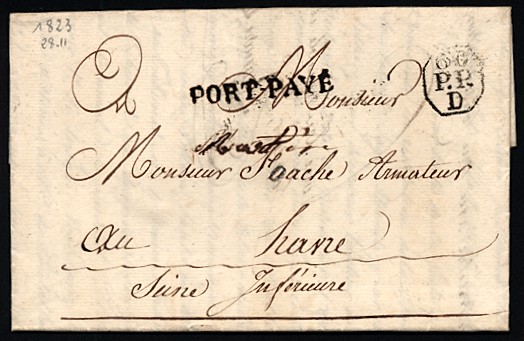 1823
28.11
A Monsieur
PORT-PAYÉ
60
P.P.
D
Monsieur Foache Armateur
Au havre
Seine Inférieure